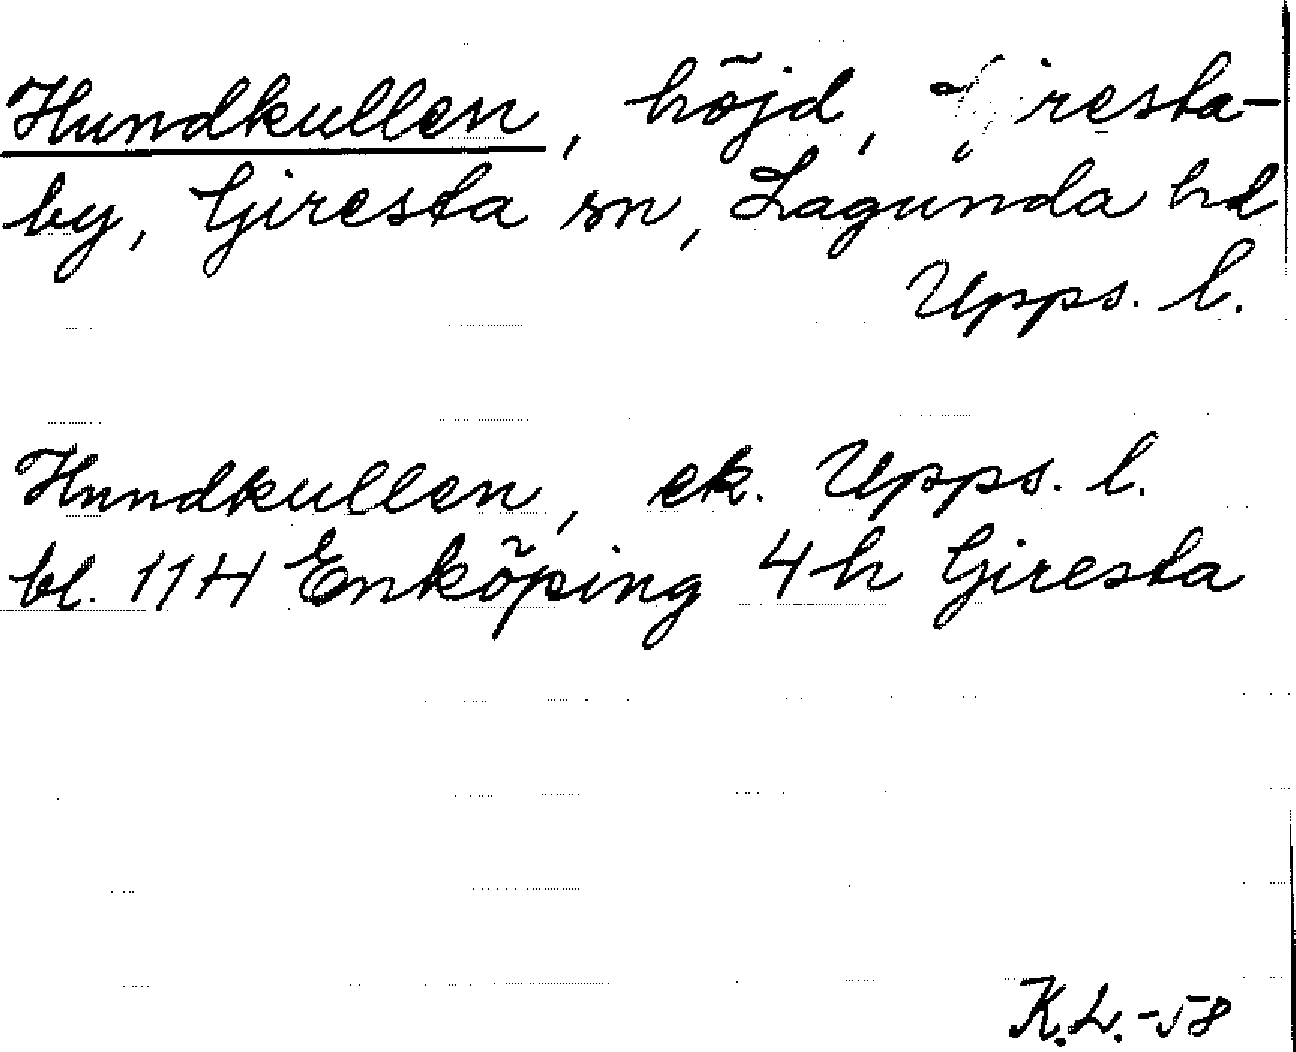 Hundkullen, höjd, Giresta-
by, Giresta sn, Lagunda hd
Upps. l.
Hundkullen, ek. Upps. l.
bl. 11H Enköping 4h Giresta
K.L.-58